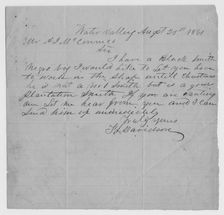 Water Valley Augst 20th 1861
Mr. A. J. McConnico
Sir
I have a Black Smith
Negro boy I would like to let you have
to work in the Shop untill Christmas
he is not a Smith but is a good
Plantation Smith If you are wanting
one let me hear from you and I can
Send him up immediately
Yours
Davidson